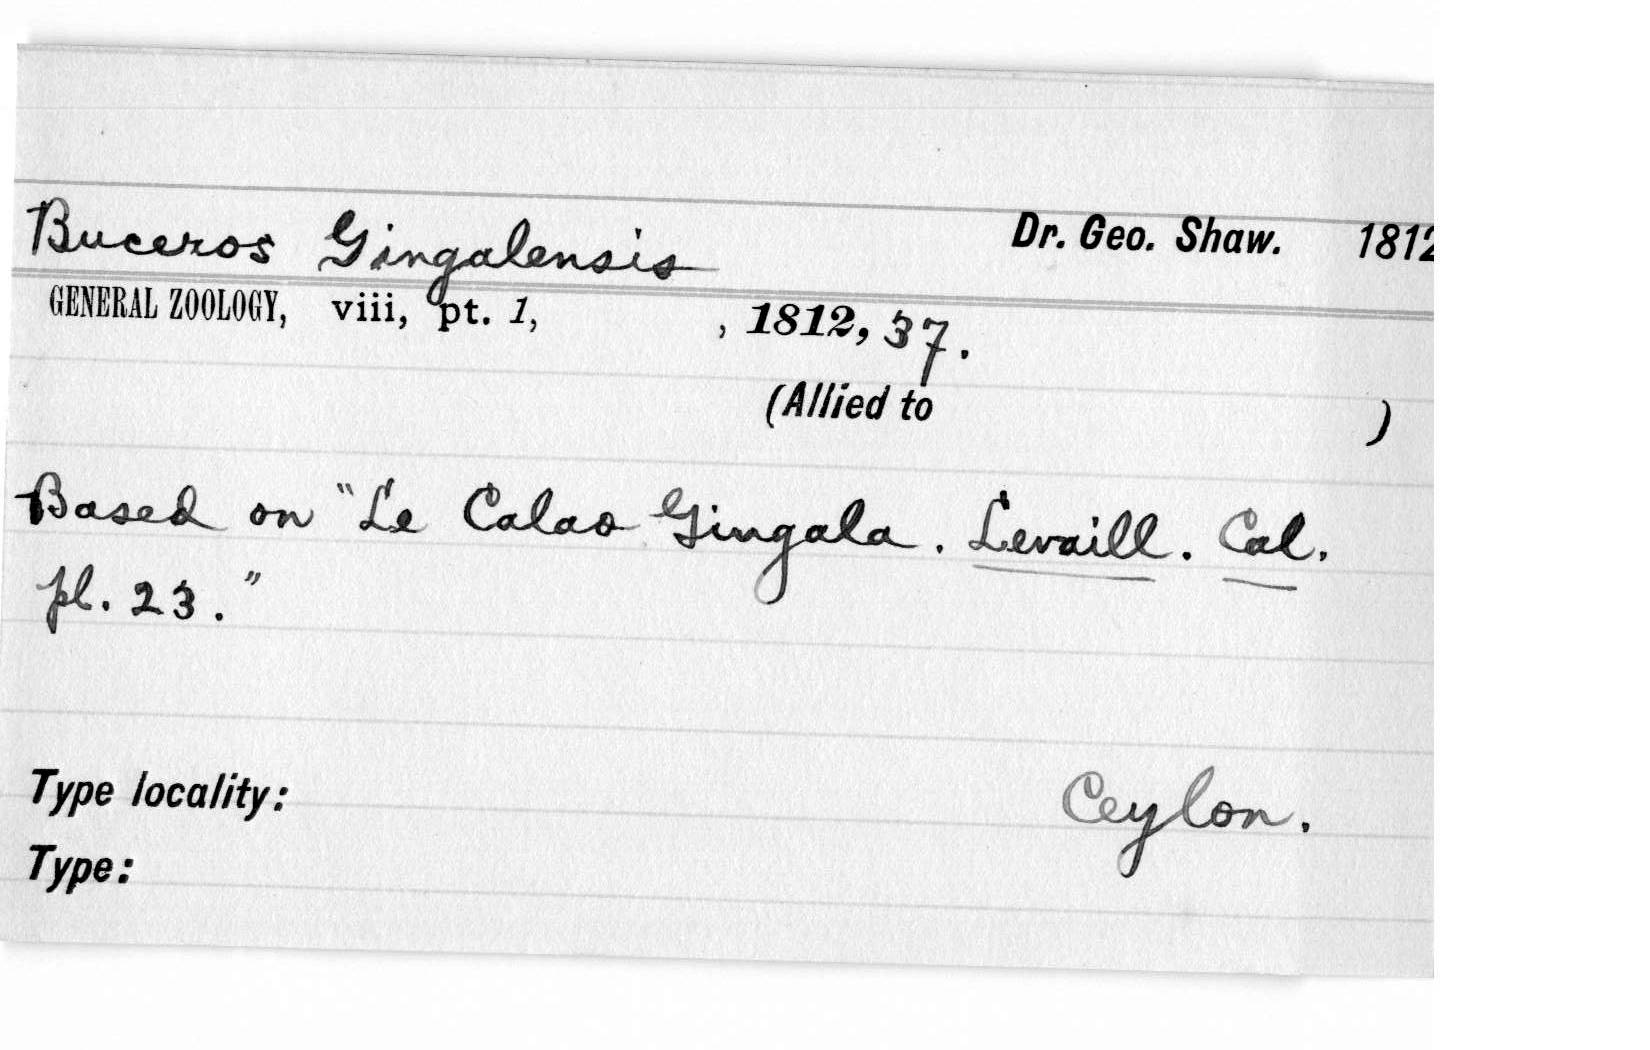 Buceros Gingalensis Dr. Geo. Shaw. 1812
GENERAL ZOOLOGY, viii, pt. 1, , 1812, 37.
(Allied to )
Based on "Le Calao Gingala. Levaill. Cal.
pl. 23."
Type locality: Ceylon.
Type: